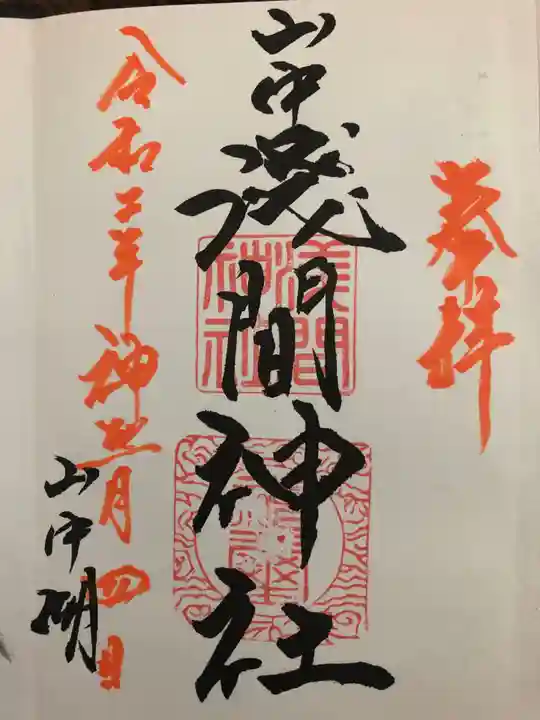 奉拝
山中浅間神社
浅間
神社
令和二年神無月四日
山中明